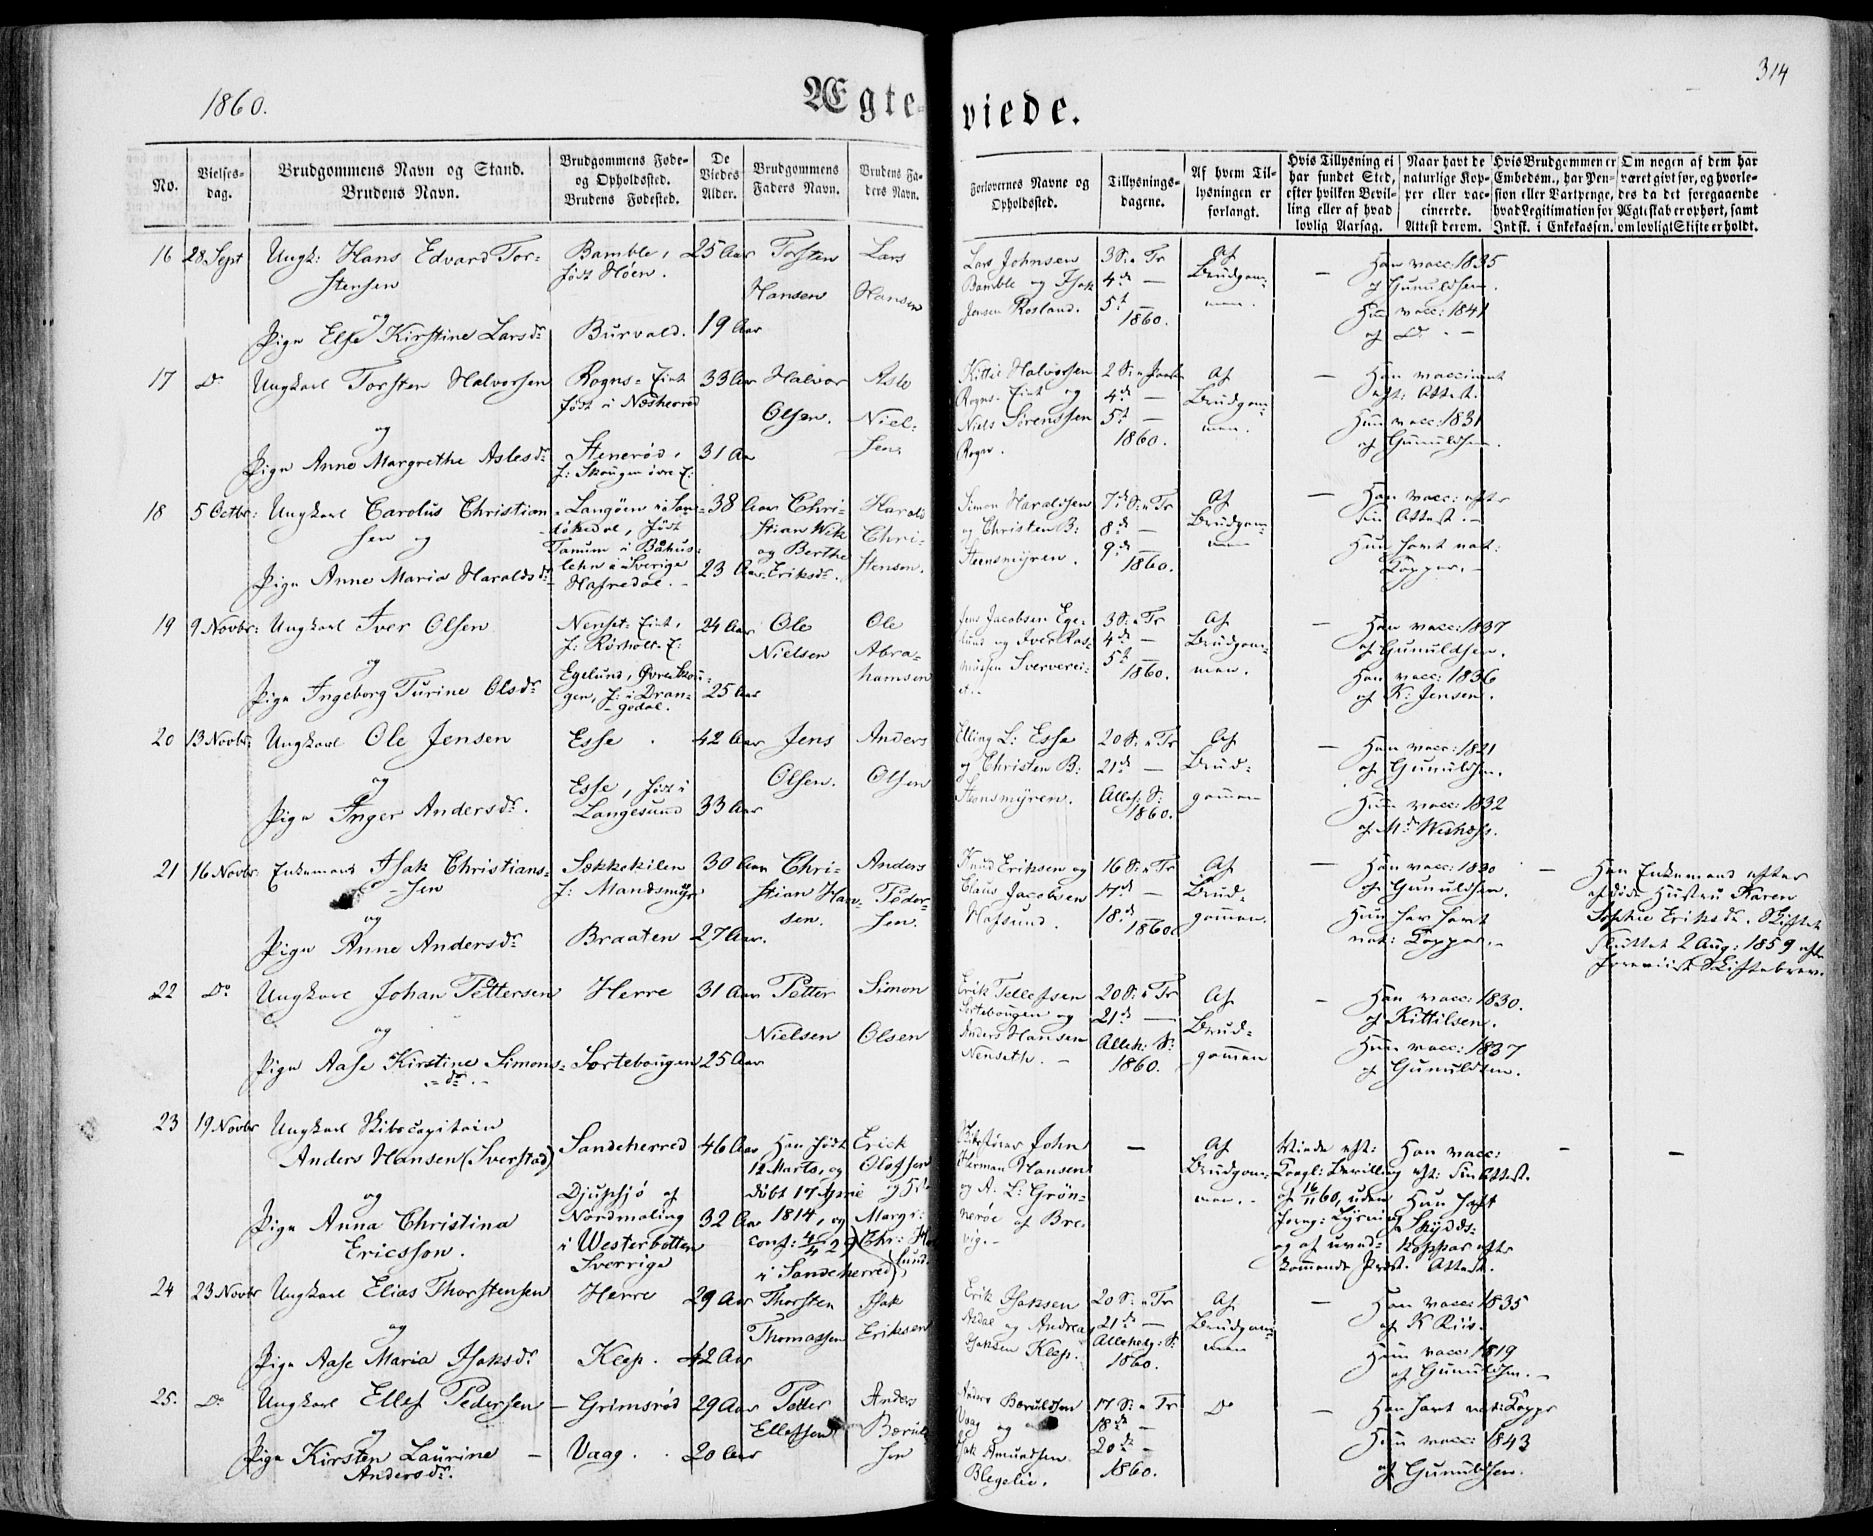 1860.
Ægte-
viede.
314
No.
Vielses-
dag.
Brudgommens Navn og Stand.
Brudens Navn.
Brudgommens Føde-
og Opholdssted.
Brudens Fødested.
De
Viedes
Alder.
Brudgommens
Faders Navn.
Brudens Fa-
ders Navn.
Forlovernes Navne og
Opholdssted.
Tillysnings-
dagene.
Af hvem Til-
lysningen er
forlangt.
Hvis Tillysning ei
har fundet Sted,
efter hvilken Bevil-
ling eller af hvad
lovlig Aarsag.
Naar havt de
naturlige Kop-
per eller vac-
cinerede.
Attest derom.
Hvis Brudgommen er
Embedsm., har Pen-
sion eller Vartpenge,
hvad Legitimation for
Indsk. i Enkekassen.
Om nogen af dem har
været givt før, og hvorle-
des da det foregaaende
Ægteskab er ophørt, samt
om lovligt Skifte er holdt.
16
28 Sept
Ungk: Hans Edvard Tor-
stensen
og
Pige Else Kirstine Larsdr
Bamble,
født Høen.
Burvald.
25 Aar
19 Aar
Torsten
Hansen
Lars
Hansen
Lars Johnsen
Bamble og Isak
Jensen Rosland.
3 S. e Tr
4de —
5t —
1860.
Af
Brudgom-
men.
—
Han vacc: 1835
af Gunuldsen.
Hun vacc: 1841
af Do. -
17
Do
Ungkarl Torsten Halvorsen
og
Pige Anne Margrethe Aslesdr
Rogns- Eiet
født i Næsherred
Stenerød,
f: Skougen øvre E:
33 Aar
31 Aar
Halvor
Olsen.
Asle
Niel-
sen
Kittil Halvorsen
Rogns- Eiet og
Niels Sørenssen
Rogn.
2 S. e Paaske
4de —
5t —
1860.
Af
Brudgom-
men.
—
Han vaccineret
eft: Attest.
Hun vacc: 1831
af Gunuldsen.
18
5 Octbr:
Ungkarl Carolus Christian-
sen og
Pige Anne Maria Haraldsdr
Langøen i San-
døkedal, født
Tanum i Båhus-
lehn i Sverige
Hafredal. -
38 Aar
23 Aar
Chri-
stian Wik
og Berthe
Eriksdr.
Harald
Chri-
stensen.
Simon Haraldsen
og Christen B:
Steensmyren.
7de S. e Tr
8de —
9de —
1860.
Af
Brudgom-
men
—
Han vacc: efter
Sin Attest. -
Hun havt nat:
Kopper. -
19
9 Novbr:
Ungkarl Iver Olsen
og
Pige Ingeborg Turine Olsdr
Nenset- Eiet,
f: Rørholt- E:
Egelund, Øvre Skou-
gen, f: i Dran-
gedal.
24 Aar
25 Aar
Ole
Nielsen
Ole
Abra-
hamsen
Jens Jacobsen Ege-
lund og Iver Ras-
mussen Sververei-
et. -
3 S. e Tr
4de —
5t —
1860.
Af
Brudgom-
men.
—
Han vacc: 1837
af Gunuldsen.
Hun vacc: 1836
af K: Jensen.
20
13 Novbr:
Ungkarl Ole Jensen
og
Pige Inger Andersdr.
Esse .
Esse, født i
Langesund
42 Aar
33 Aar
Jens
Olsen.
Anders
Olsen
Elling L: Esse
og Christen B:
Steensmyren.
20 S. e Tr
21de —
Alleh: S:
1860.
Af
Brud-
gommen
—
Han vacc: 1821
af Gunuldsen.
Hun vacc: 1832
af Md Weshofs.
21
16 Novbr
Enkemand Isak Christians-
-sen
og
Pige Anne Andersdr
Sækkekilen
f: Mandsmyr
Braaten
30 Aar
27 Aar.
Chri-
stian Han-
sen.
Anders
Peder-
sen.
Knud Eriksen og
Claus Jacobsen
Hafsund.
16 S. e Tr
17de —
18de —
1860.
Af
Brud-
gommen.
—
Han vacc: 1830
af Gunuldsen.
Hun har havt
nat: Kopper. -
—
Han Enkemand efter
afdøde Hustru Karen
Sophie Eriksdr. Skiftet
sluttet 2 Aug: 1859 efter
foreviist Skiftebrev.
22
Do
Ungkarl Johan Pettersen
og
Pige Aase Kirstine Simons-
-dr. -
Herre
Sortebougen
31 Aar
25 Aar
Petter
Nielsen
Simon
Olsen
Erik Tellefsen
Sortebougen og
Anders Hansen
Nenseth. -
20 S. e Tr
21de —
Alleh: S:
1860.
Af
Brud-
gommen
—
Han vacc: 1830.
af Kittilsen.
Hun vacc: 1837
af Gunuldsen.
23
19 Novbr
Ungkarl Skibscapitain
Anders Hansen (Sverstad)
og
Pige Anna Christina
Ericsson.
Sandeherred
Djupsjö af
Nordmaling
i Westerbotten
Sverrige
46 Aar
32 Aar
Han født
12 Marts, og
døbt 17 April
1814, og
conf: 4/4 29
i Sandeherred)
Erick
Olofsson
Margr:
Chr: Hol
lund.
Skibsfører John
Herman Hansen
og A. L: Grøn-
nerøe af Bre-
vig. -
—
Af
Brudgom-
men. -
Viede eft:
Kongl: Bevilling
af 16/11 60, uden
foreg: Lysning
og af uved-
kommende Præst.
Han vacc:
eft: Sin Attest.
Hun haft
Skydds-
koppor efter
Attest.
—
—
24
23 Novbr
Ungkarl Elias Thorstensen
og
Pige Aase Maria Isaksdr
Herre
Klep.
29 Aar
42 Aar
Thorsten
Thomassen
Isak
Eriksen
Erik Isaksen
Asdal og Andreas
Isaksen Klep.
20 S. e Tr
21de —
Alleheg: S:
1860.
Af
Brudgom-
men
—
Han vacc: 1835
af K Riis.
Hun vacc: 1819
af Gunuldsen. -
25.
Do
Ungkarl Ellef Pedersen
og
Pige Kirsten Laurine
Andersdr.
Grimsrød
Vaag. .
29 Aar
20 Aar
Petter
Ellefsen
Anders
Bæruld-
sen
Anders Bæruldsen
Vaag og
Isak Amundsen
Blegelie.
17 S. e Tr
18de —
20de —
1860.
Do
—
Han havt nat: Kopper
Hun vacc: 1843
af Gunuldsen.